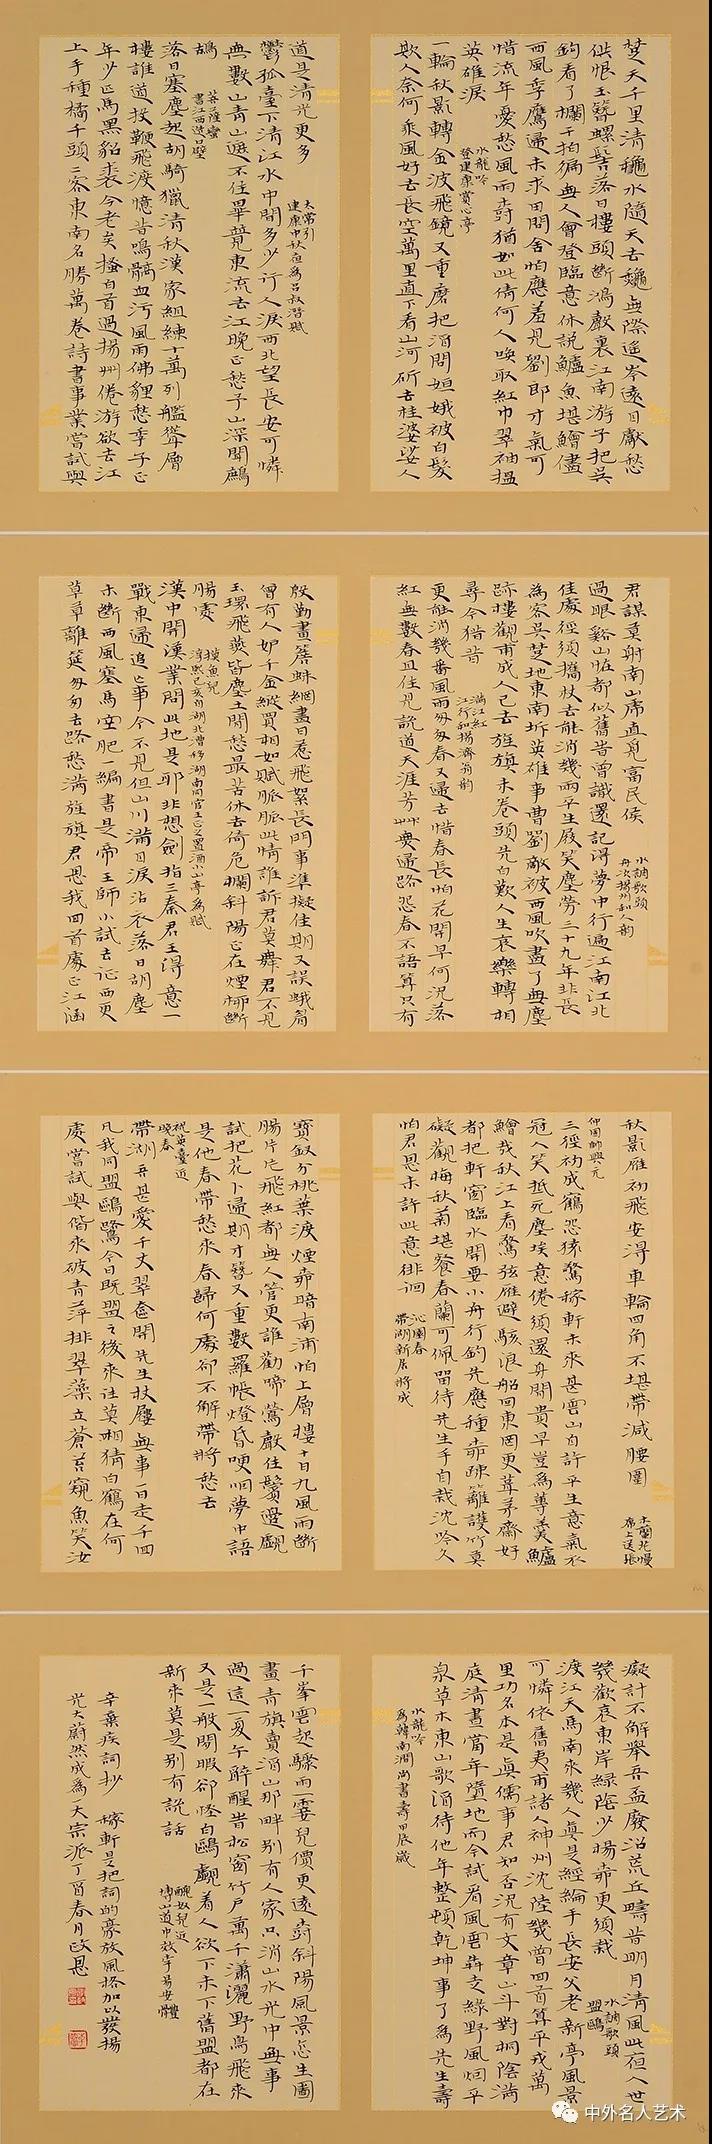 楚天千里清龝水隨天去龝無際遙岑遠目獻愁
供恨玉簪螺髻落日樓頭斷鴻聲裏江南游子把吳
鉤看了欄干拍徧無人會登臨意休說鱸魚堪鱠儘
西風季鷹歸未求田問舍怕應羞見劉郎才氣可
惜流年憂愁風雨樹猶如此倩何人喚取紅巾翠袖搵
英雄淚
水龍吟
登建康賞心亭
一輪秋影轉金波飛鏡又重磨把酒問姮娥被白髮
欺人奈何乘風好去長空萬里直下看山河斫去桂婆娑人
道是清光更多
太常引
建康中秋夜為呂叔潛賦
鬱孤臺下清江水中間多少行人淚西北望長安可憐
無數山青山遮不住畢竟東流去江晚正愁予山深聞鷓
鴣
菩薩蠻
書江西造口壁
落日塞塵起胡騎獵清秋漢家組練十萬列艦聳層
樓誰道投鞭飛渡憶昔鳴髇血污風雨佛貍愁季子正
年少匹馬黑貂裘今老矣搔白首過揚州倦游欲去江
上手種橘千頭二客東南名勝萬卷詩書事業嘗試與
君謀莫射南山虎直覓富民侯
水調歌頭
舟次揚州和人韻
過眼谿山怪都似舊昔曾識還記得夢中行遍江南江北
佳處徑須攜杖去能消幾兩平生屐笑塵勞三十九年非長
為客吳楚地東南坼英雄事曹劉敵被西風吹盡了無塵
跡樓觀甫成人已去旌旗未卷頭先白歎人生哀樂轉相
尋今猶昔
滿江紅
江行和楊濟翁韻
更能消幾番風雨匆匆春又歸去惜春長怕花開早何況落
紅無數春且住見說道天涯芳艸無歸路怨春不語算只有
殷勤畫簷蛛網盡日惹飛絮長門事準擬佳期又誤蛾眉
曾有人妒千金縱買相如賦脈脈此情誰訴君莫舞君不見
玉環飛燕皆塵土閑愁最苦休去倚危欄斜陽正在煙柳斷
腸處
摸魚兒
淳熙己亥自湖北漕移湖南同官王正之置酒小山亭為賦
漢中開漢業問此地是耶非想劍指三秦君王得意一
戰東歸追亡事今不見但山川滿目淚沾衣落日胡塵
未斷西風塞馬空肥一編書是帝王師小試去征西更
草草離筵匆匆去路愁滿旌旗君思我回首處正江涵
秋影雁初飛安得車輪四角不堪帶減腰圍
木蘭花慢
席上送張
仲固帥興元
三徑初成鶴怨猿驚稼軒未來甚雲山自許平生意氣衣
冠人笑抵死塵埃意倦須還身閑貴早豈為蓴羹鱸
鱠哉秋江上看驚弦雁避駭浪船回東岡更葺茅齋好
都把軒窗臨水開要小舟行釣先應種柳疎籬護竹莫
礙觀梅秋菊堪餐春蘭可佩留待先生手自栽沈吟久
怕君恩未許此意徘徊
沁園春
帶湖新居將成
寶釵分桃葉渡煙柳暗南浦怕上層樓十日九風雨斷
腸片片飛紅都無人管更誰勸啼鶯聲住鬢邊覷
試把花卜歸期才簪又重數羅帳燈昏哽咽夢中語
是他春帶愁來春歸何處卻不解帶將愁去
祝英臺近
晚春
帶湖吾甚愛千丈翠奩開先生杖屨無事一日走千回
凡我同盟鷗鷺今日既盟之後來往莫相猜白鶴在何
處嘗試與偕來破青萍排翠藻立蒼苔窺魚笑汝
癡計不解舉吾盃廢沼荒丘疇昔明月清風此夜人世
幾歡哀東岸綠陰少楊柳更須栽
水調歌頭
盟鷗
渡江天馬南來幾人真是經綸手長安父老新亭風景
可憐依舊夷甫諸人神州沈陸幾曾回首算平戎萬
里功名本是真儒事君知否況有文章山斗對桐陰滿
庭清晝當年墮地而今試看風雲犇走綠野風烟平
泉草木東山歌酒待他年整頓乾坤事了為先生壽
水龍吟
為韓南澗尚書壽甲辰歲
千峯雲起驟雨一霎兒價更遠樹斜陽風景怎生圖
畫青旗賣酒山那畔別有人家只消山水光中無事
過這一夏午醉醒昔松窗竹戶萬千瀟灑野鳥飛來
又是一般閑暇卻怪白鷗覷着人欲下未下舊盟都在
新來莫是別有說話
醜奴兒近
博山道中效李易安體
辛棄疾詞抄 稼軒是把詞的豪放風格加以發揚
光大蔚然成為大宗派丁酉春月政恩
中外名人艺术